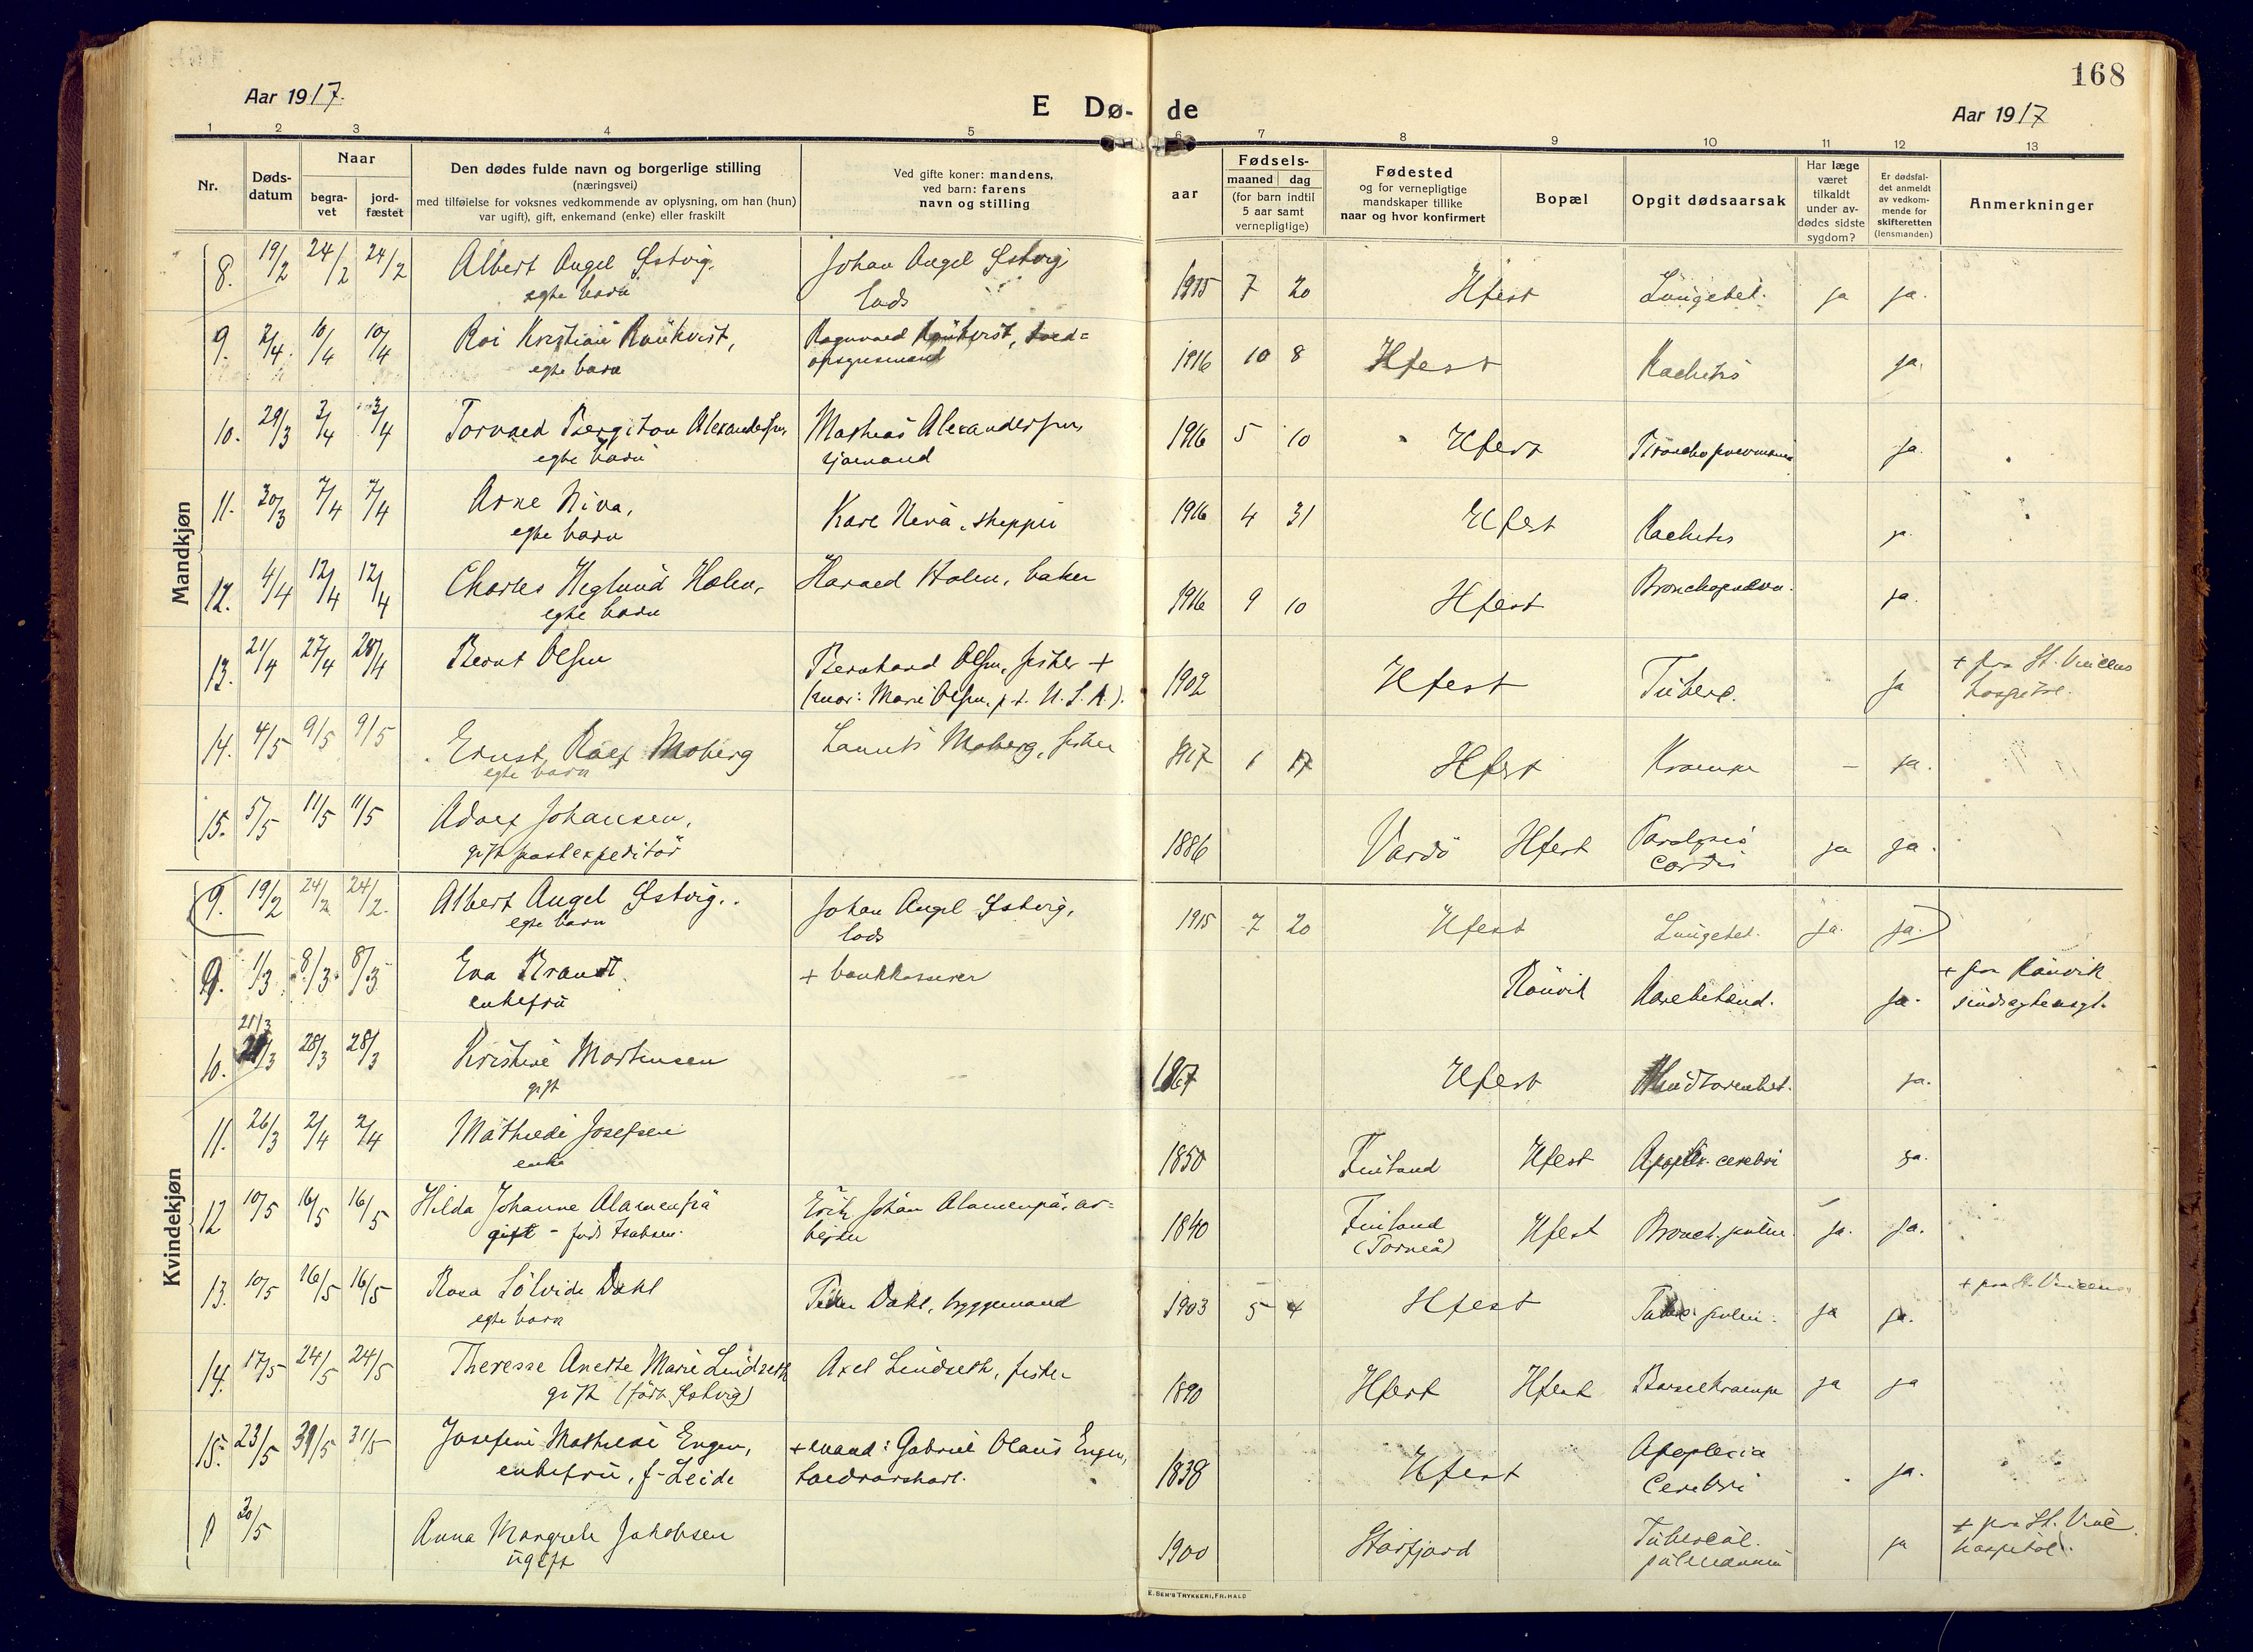 168
Aar 1917.
E Dø- de
Aar 1917
1 2 3 4 5 6 7 8 9 10 11 12 13
Nr.
Døds-
datum
Naar
begra-
vet
jord-
fæstet
Den dødes fulde navn og borgerlige stilling
(næringsvei)
med tilføielse for voksnes vedkommende av oplysning, om han (hun)
var ugift), gift, enkemand (enke) eller fraskilt
Ved gifte koner: mandens,
ved barn: farens
navn og stilling
aar
Fødsels-
maaned dag
(for barn indtil
5 aar samt
vernepligtige)
Fødested
og for vernepligtige
mandskaper tillike
naar og hvor konfirmert
Bopæl
Opgit dødsaarsak
Har læge
været
tilkaldt
under av-
dødes sidste
sygdom?
Er dødsfal-
det anmeldt
av vedkom-
mende for
skifteretten
(lensmanden)
Anmerkninger
Mandkjøn
8. 19/2 24/2 24/2 Albert Angel Østvig, Johan Angel Østvig
egte barn lods
1915 7 20 Hfest Lungebet. ja ja.
9. 2/4. 10/4 10/4 Roi Kristian Rønkvist, Ragnvald Rønkvist, told=
egte barn opsynsmand
1916 10 8 Hfest Rachitis ja.
10. 29/3 3/4 3/4 Torvald Bergiton Alexandersen, Mathias Alexandersen,
egte barn sjømand
1916 5 10 Hfest Bronchopneumoni ja.
11. 30/3 7/4 7/4 Arne Niva, Karl Neva, skipper
egte barn
1916 4 31 Hfest Rachitis ja.
12. 4/4 12/4 12/4 Charles Heglund Holm, Harald Holm, baker
egte barn
1916 9 10 Hfest Bronchopneum. ja.
13. 21/4 27/4 28/4 Bernt Olsen Bernhard Olsen, fisker +
(mor: Marie Olsen, p.t. U.S.A).
1902 Hfest Tuberc. ja + paa St. Vincens
hospital.
14. 4/5 9/5 9/5 Ernst Ralf Moberg Laurits Moberg, fisker
egte barn
1917 1 17 Hfest Krampe - ja.
15. 5/5 11/5 11/5 Adolf Johansen,
gift postexpeditør
1886 Vardö Hfest Paralysis
cordis ja ja.
Kvindekjøn
(9. 19/2 24/2 24/2. Albert Angel Østvig.. Johan Angel Østvig,
egte barn lods
1915 7 20 Hfest Lungebet. ja. ja.)
9. 1/3 8/3 8/3 Eva Brandt + bankkasserer
enkefru
Rønvik ja. + paa Rønvik
sindssykeasyl.
21/3
10. 21/3 28/3 28/3 Kristine Mortensen
gift
1867 Hfest ja.
11. 26/3 2/4 2/4 Mathilde Josefsen
enke
1850 Finland Hfest Apoplex. cerebri ja.
12 10/5 16/5 16/5 Hilda Johanne Alamenpä Erik Johan Alamenpä, ar=
gift - født Isaksen. beider
1840 Finland
(Torneå) Hfest Bronch. pulm. ja. ja.
13. 10/5 16/5 16/5 Rosa Sölvide Dahl Peder Dahl, byggemand
egte barn
1903 5 4 Hfest Tuberc. pulm. ja ja. + paa St. Vincens
14. 17/5 24/5 24/5 Theresse Anette Marie Lindseth Axel Lindseth, fisker
gift (født Østvig)
1890 Hfest Hfest Barselkrampe ja ja
15. 23/5 31/5 31/5 Josefine Mathilde Engen, + mand: Gabriel Olaus Engen,
enkefru, f. Leide
1838 Hfest Apoplexia
Cerebri ja.
30/5 Anna Margrete Jakobsen
ugift
1900 Starfjord Tubercul.
pulmonum ja + paa St. Vinc.
hospital.
E. SEM'S TRYKKERI, FR.HALD